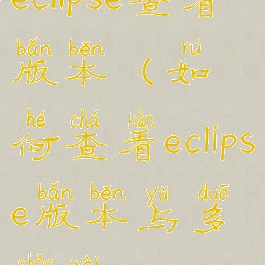 eclipse查看
bǎn běn rú
版本（如
hé chá kàn
何查看eclips
bǎn běn yǔ duō
e版本与多
shǎo wèi